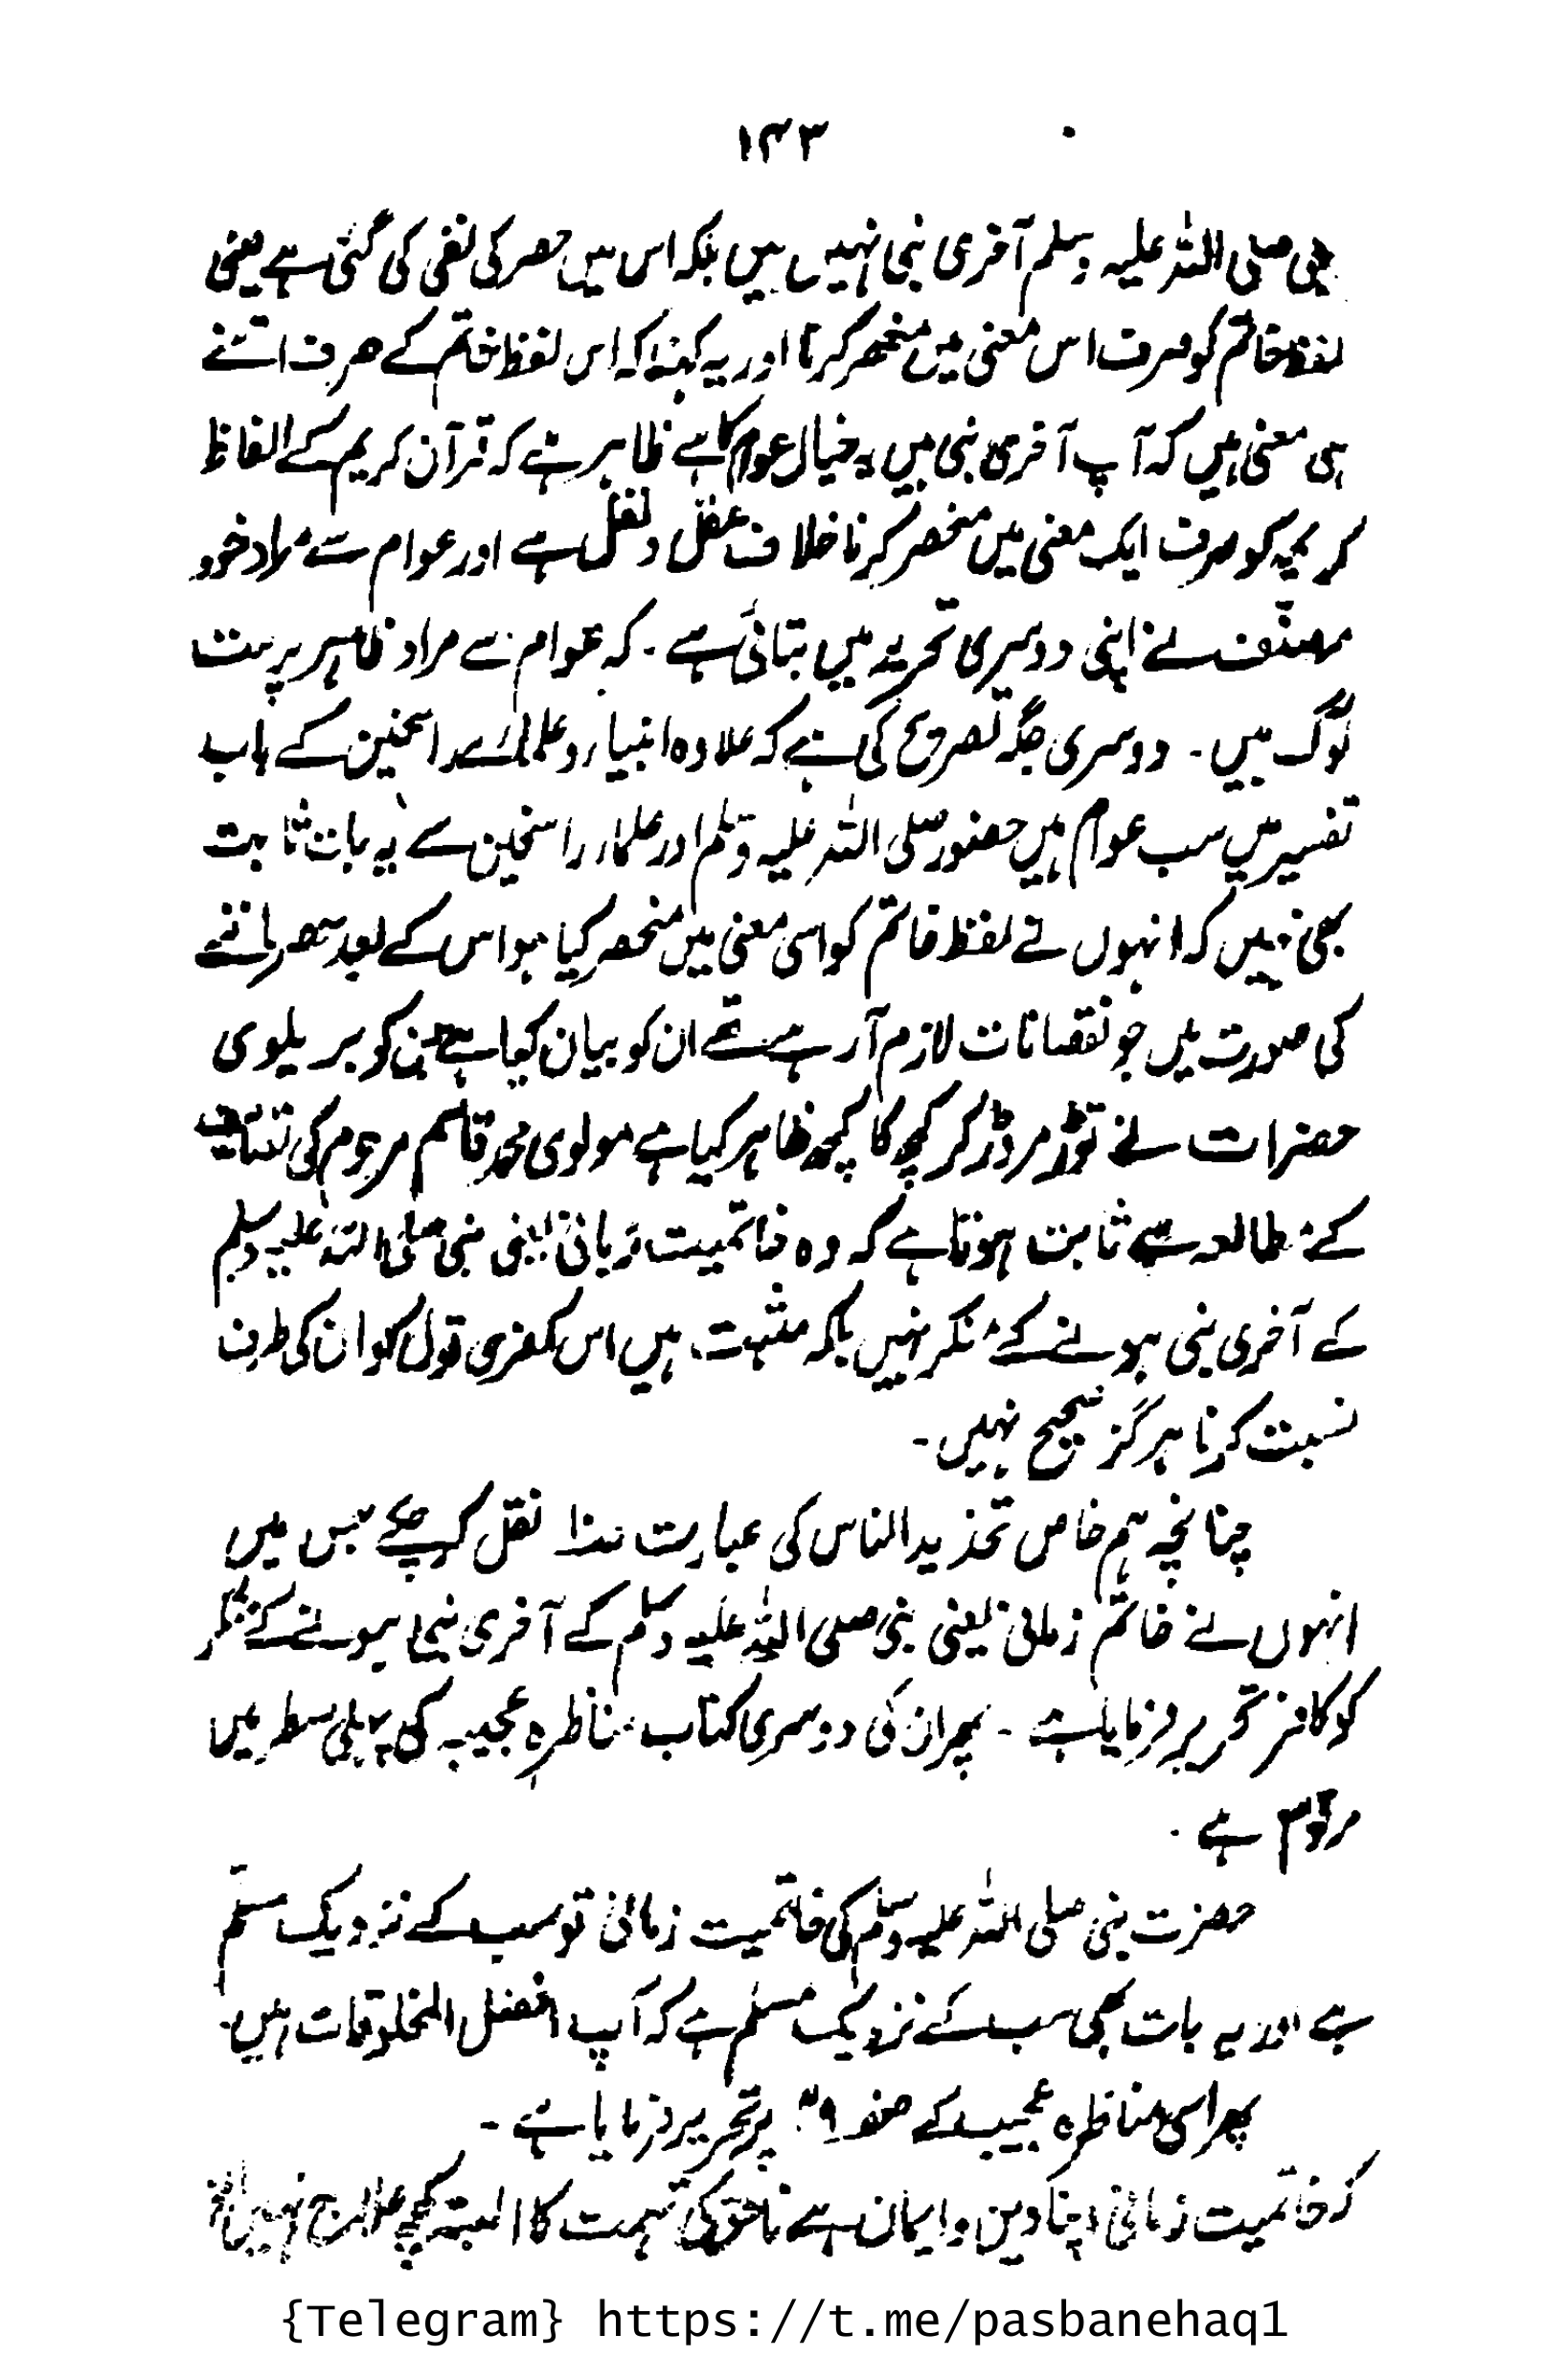 ۱۴۳
نبی صلی اللہ علیہ وسلم آخری نبی نہیں ہیں بلکہ اس میں حصر کی نفی کی گئی ہے یعنی
لفظ خاتم کو صرف اس معنی میں منحصر کرنا اور یہ کہنا کہ اس لفظ خاتم کے صرف اتنے
ہی معنی ہیں کہ آپ آخری نبی ہیں یہ خیال عوام کا ہے ظاہر ہے کہ قرآن کریم کے الفاظ
کریمہ کو صرف ایک معنی میں منحصر کرنا خلاف عقل و نقل ہے اور عوام سے مراد خود
مصنف نے اپنی دوسری تحریر میں بتائی ہے ۔ کہ عوام سے مراد ظاہر پرست
لوگ ہیں ۔ دوسری جگہ تصریح کی ہے کہ علاوہ انبیاء و علمائے راسخین کے باب
تفسیر میں سب عوام ہیں حضور صلی اللہ علیہ وسلم اور علماء راسخین سے یہ بات ثابت
بھی نہیں کہ انہوں نے لفظ خاتم کو اسی معنی میں منحصر کیا ہو اس کے بعد حصر ماننے
کی صورت میں جو نقصانات لازم آرہے تھے ان کو بیان کیا ہے جن کو بریلوی
حضرات نے توڑ مروڑ کر کچھ کا کچھ ظاہر کیا ہے مولوی محمد قاسم مرحوم کی تصانیف
کے مطالعہ سے ثابت ہوتا ہے کہ وہ خاتمیت زمانی یعنی نبی صلی اللہ علیہ وسلم
کے آخری نبی ہونے کے منکر نہیں بلکہ مثبت ہیں اس کفری قول کو ان کی طرف
نسبت کرنا ہرگز صحیح نہیں ۔
چنانچہ ہم خاص تحذیر الناس کی عبارت ھذا نقل کر چکے جس میں
انہوں نے خاتم زمانی یعنی نبی صلی اللہ علیہ وسلم کے آخری نبی ہونے کے منکر
کو کافر تحریر فرمایا ہے ۔ پھر ان کی دوسری کتاب مناظرہ عجیبہ کی پہلی سطر میں
مرقوم ہے ۔
حضرت نبی صلی اللہ علیہ وسلم کی خاتمیت زمانی تو سب کے نزدیک مسلم
ہے اور یہ بات بھی سب کے نزدیک مسلم ہے کہ آپ افضل المخلوقات ہیں۔
پھر اسی مناظرہ عجیبہ کے صفحہ پر تحریر فرمایا ہے ۔
کہ خاتمیت زمانی اپنا دین و ایمان ہے ناحق کی تہمت کا البتہ کچھ علاج نہیں
{Telegram} https://t.me/pasbanehaq1